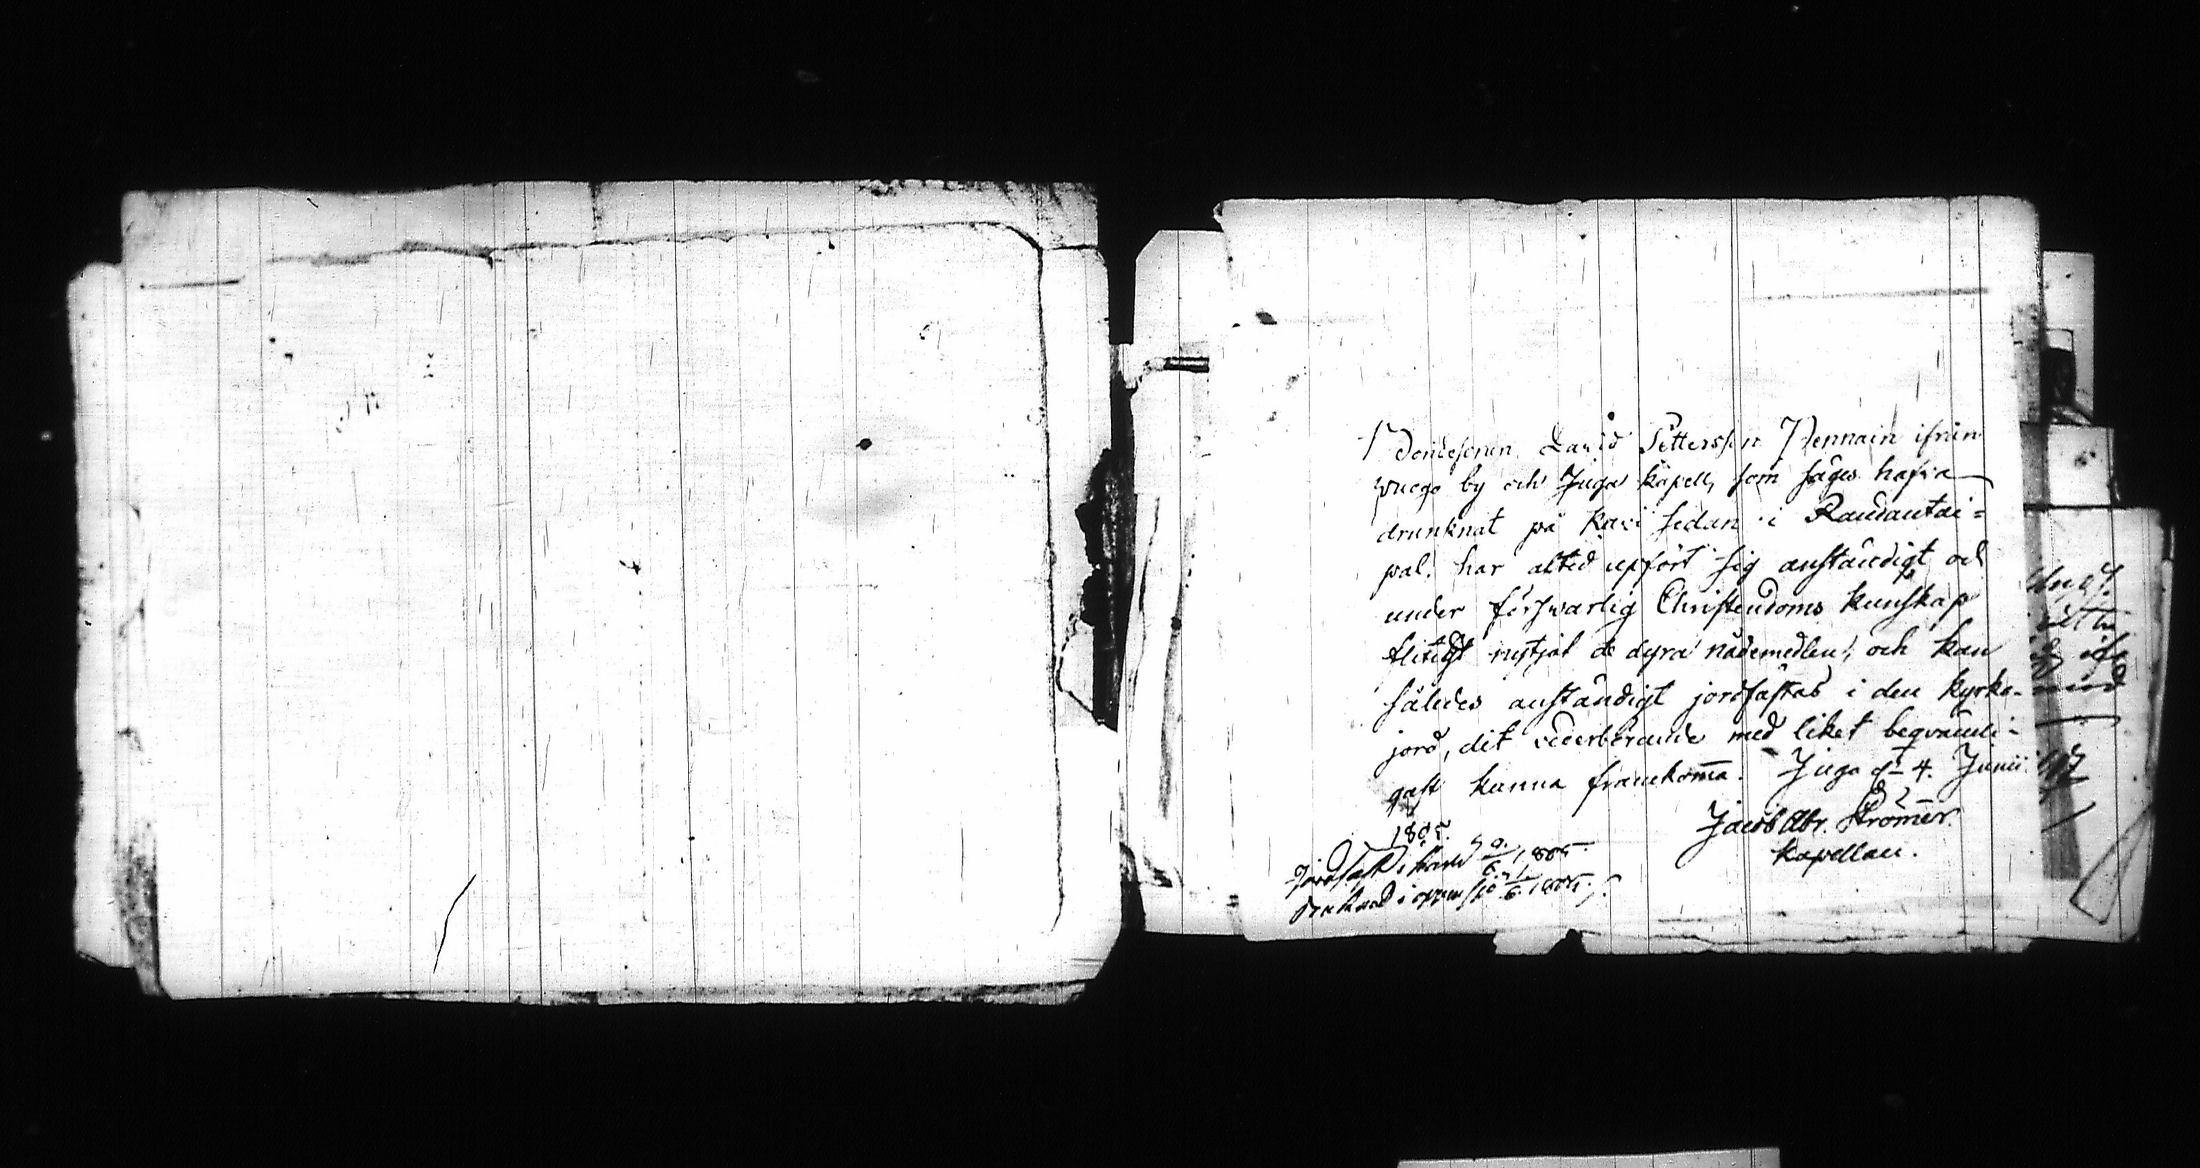 Bondesonen David Pettersson Pennain ifrån
by och Juga kapell, som säges hafva
drunknat på kari sedan i Randantai-
pal. har altid upfört sig anständigt och
under förswarlig Christendoms kunskap
flitigt nystjat de dyra nådemedlen, och kan
således anständigt jordfästas i den kyrko-
jord, dit vederbörande med liket beqvämli-
gast kunna framkomma. Juga d. 4. Junii
1805.
Jacob Abr. Strömer.
kapellan.
Jordfäst i 9/6 1805.